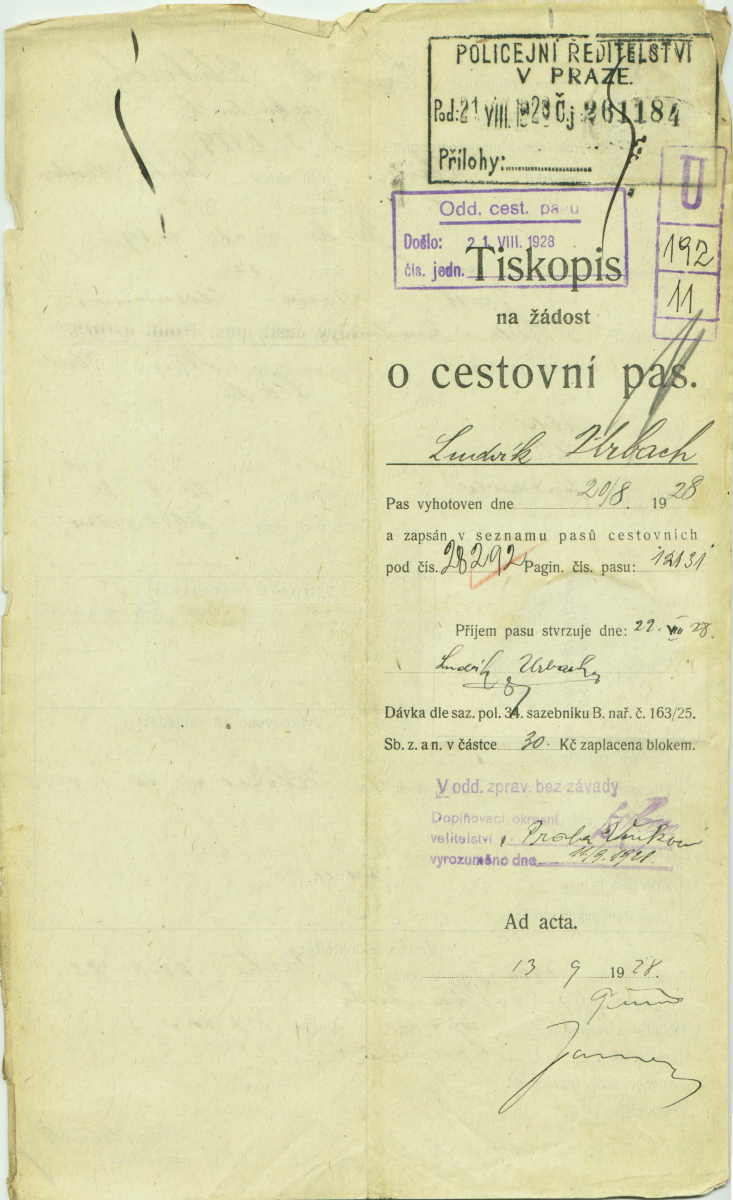 POLICEJNÍ ŘEDITELSTVÍ
V PRAZE.
Pod: 21 VIII. 1928 Čj 261184
Přílohy:
U
192
11
Odd. cest. pasů
Došlo: 21. VIII. 1928
čís. jedn.
Tiskopis
na žádost
o cestovní pas.
Ludvík Urbach
Pas vyhotoven dne 20/8. 1928
a zapsán v seznamu pasů cestovních
pod čís. 28292 Pagin. čís. pasu: 12131
Příjem pasu stvrzuje dne: 22. VIII 28.
Ludvík Urbach
Dávka dle saz. pol. 34. sazebníku B. nař. č. 163/25.
Sb. z. a n. v částce 30. Kč zaplacena blokem.
V odd. zprav. bez závady
Doplňovací okresní
velitelství Praha Venkov
vyrozuměno dne 11/9. 1928
Ad acta.
13 9 1928.